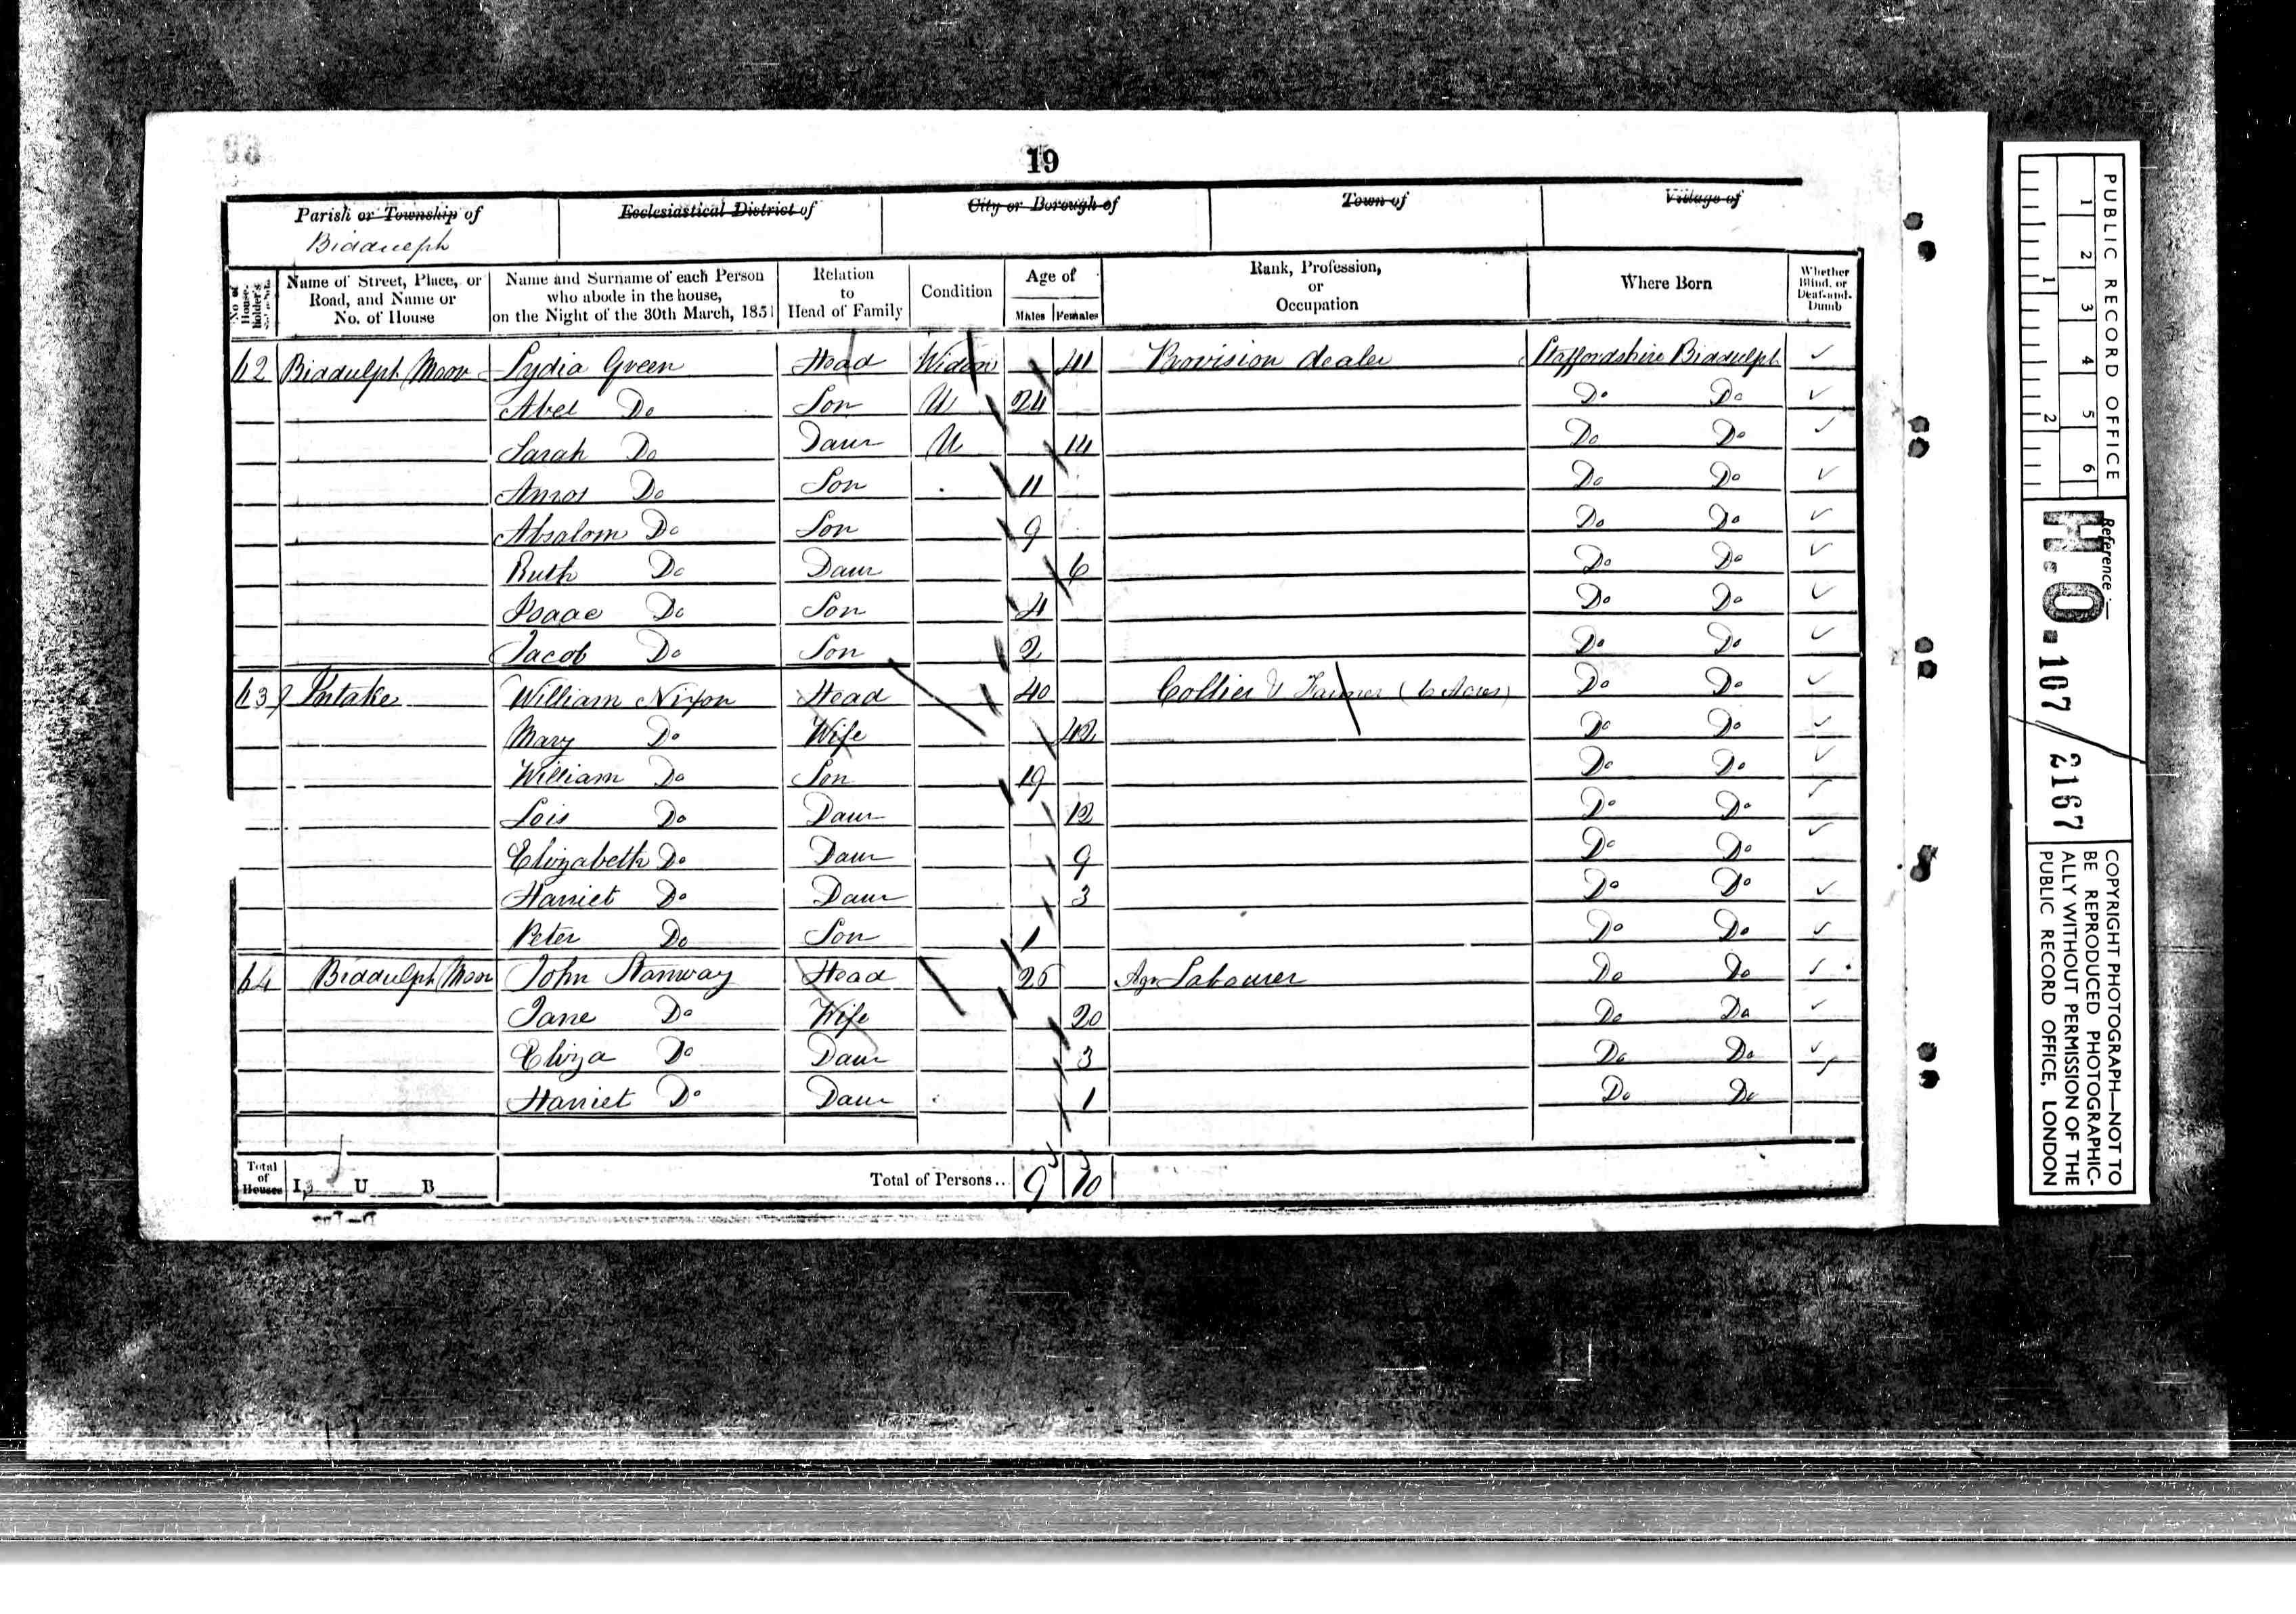 19
Parish or Township of Ecclesiastical District of City or Borough of Town of Village of
Biddulph
No. of House-holder's Name of Street, Place, or Road, and Name or No. of House Name and Surname of each Person who abode in the house, on the Night of the 30th March, 1851 Relation to Head of Family Condition Age of Males Females Rank, Profession, or Occupation Where Born Whether Blind, or Deaf-and-Dumb
62 Biddulph Moor Lydia Green Head Widow 41 Provision dealer Staffordshire Biddulph
Abel Do Son U 24 Do Do
Sarah Do Daur U 14 Do Do
Amos Do Son 11 Do Do
Absalom Do Son 9 Do Do
Ruth Do Daur 6 Do Do
Isaac Do Son 4 Do Do
Jacob Do Son 2 Do Do
63 Intake William Nixon Head 40 Collier & Farmer (6 Acres) Do Do
Mary Do Wife 42 Do Do
William Do Son 19 Do Do
Lois Do Daur 12 Do Do
Elizabeth Do Daur 9 Do Do
Harriet Do Daur 3 Do Do
Peter Do Son 1 Do Do
64 Biddulph Moor John Stanway Head 25 Agr Labourer Do Do
Jane Do Wife 20 Do Do
Eliza Do Daur 3 Do Do
Harriet Do Daur 1 Do Do
Total of Houses I 3 U B Total of Persons.. 9 10
PUBLIC RECORD OFFICE
1 2 3 4 5 6
1 2
Reference:—
H.O. 107 / 2167
COPYRIGHT PHOTOGRAPH—NOT TO
BE REPRODUCED PHOTOGRAPHIC-
ALLY WITHOUT PERMISSION OF THE
PUBLIC RECORD OFFICE, LONDON